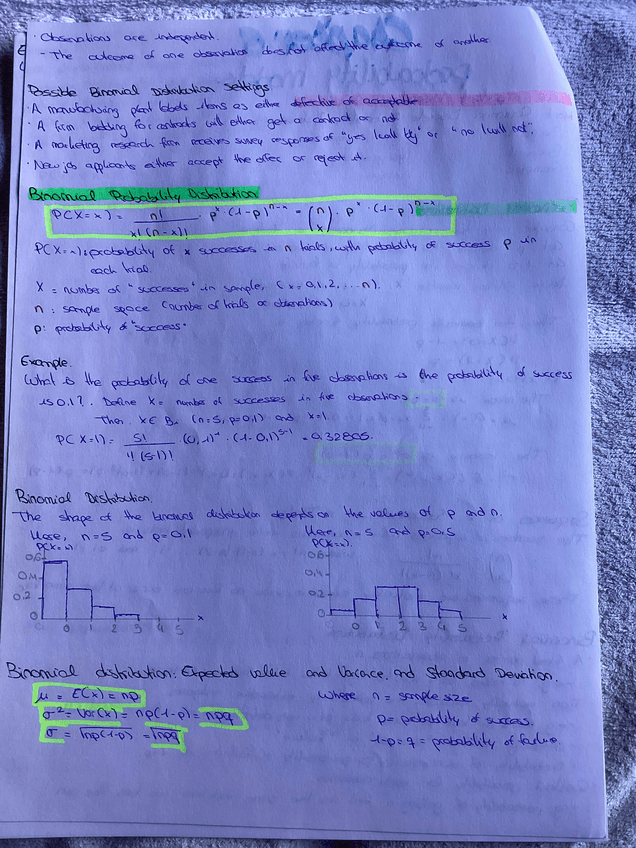 · Observations are independent.
- The outcome of one observation does not affect the outcome of another
Possible Binomial Distribution Settings
· A manufacturing plant labels items as either defective of acceptable
· A firm bidding for contracts will either get a contract or not
· A marketing research firm receives survey responses of "yes I will buy" or "no I will not".
· New job applicants either accept the offer or reject it.
Binomial Probability Distribution
P(X=x) = n! / x!(n-x)! · pˣ · (1-p)ⁿ⁻ˣ = (n x) · pˣ · (1-p)ⁿ⁻ˣ
P(X=x): probability of x successes in n trials, with probability of success p in
each trial.
X = number of "successes" in sample, (x = 0,1,2, ... n).
n : sample space (number of trials or observations)
p: probability of "success"
Example.
What is the probability of one success in five observations is the probability of success
is 0,1? Define X = number of successes in five observations
Then X ∈ B (n=5, p=0,1) and x=1.
P(X=1) = 5! / 1! (5-1)! (0,1)¹ · (1-0,1)⁵⁻¹ = 0,32805.
Binomial Distribution.
The shape of the binomial distribution depends on the values of p and n.
Here, n=5 and p=0,1
Here, n=5 and p=0,5
P(X=x)
0,6
0,4
0,2
0
0 1 2 3 4 5 x
P(X=x)
0,6
0,4
0,2
0
0 1 2 3 4 5 x
Binomial distribution. Expected value and Variance, and Standard Deviation.
μ = E(x) = np
σ² = Var(x) = np(1-p) = npq
σ = √np(1-p) = √npq
where n = sample size
p = probability of success.
1-p = q = probability of failure.